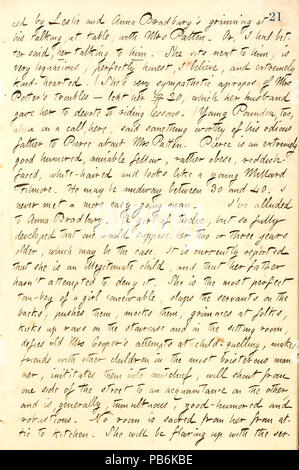 21
ed by Leslie and Anna Bradbury's grinning at
his talking at table, with Mrs Patten. Or, I had bet-
ter said, her talking to him. She sits next to him, is
very loquacious, perfectly honest, I believe, and extremely
kind-hearted. (She's very sympathetic apropos of Mrs
Potter's troubles — lent her $20, which her husband
gave her to devote to riding lessons.) Young Pounden, too,
when on a call here, said something worthy of his odious
father to Pierce about Mrs Patten. Pierce is an extremely
good humored, amiable fellow, rather obese, reddish-
faced, white-haired and looks like a young Millard
Filmore. He may be midway between 30 and 40. I
never met a more easy going man. I've alluded
to Anna Bradbury. A girl of twelve, but so fully
developed that one would suppose her two or three years
older, which may be the case. It is currently reported
that she is an illegitimate child, and that her father
hasn't attempted to deny it. She is the most perfect
tom-boy of a girl conceivable, slaps the servants on their
backs, pushes them, mocks them, grimaces at folks,
kicks up rows on the staircase and in the sitting room
defies old Mrs Cooper's attempts at child-quelling, makes
friends with other children in the most boisterous man-
ner, initiates them into mischief, will shout from
one side of the street to an acquaintance on the other
and is, generally, tumultuous, good-humored and
robustious. No room is sacred from her from at-
tic to kitchen. She will be flaring up with the ser-
alamy
PB6KBE